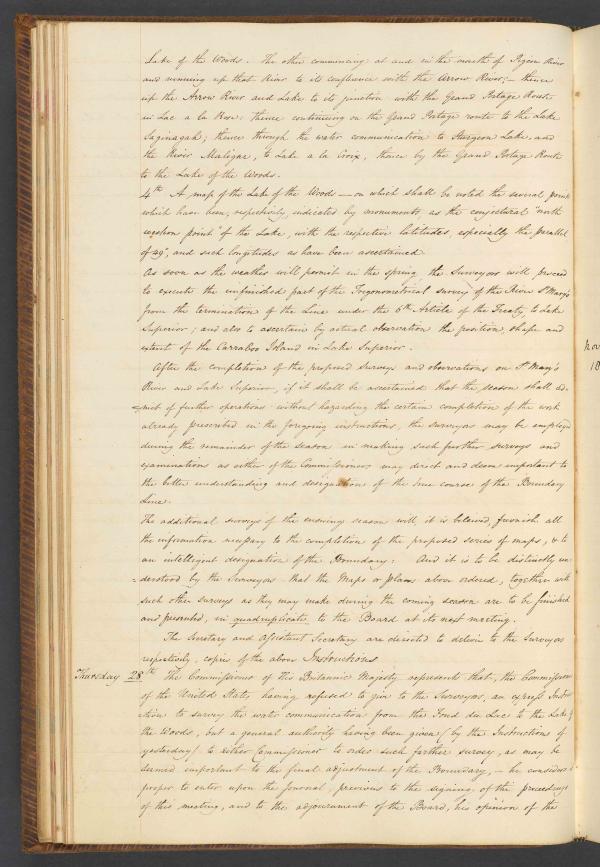 Lake of the Woods. The other commencing at and in the mouth of Pigeon River
and running up that River to its confluence with the Arrow River;— thence
up the Arrow River and Lake to its junction with the Grand Portage Route
in Lac a la Rose: thence continuing on the Grand Portage route to the Lake
Saginagah; thence through the water communication to Sturgeon Lake, and
the River Maligne, to Lake a la Croix, thence by the Grand Portage Route
to the Lake of the Woods.
4th A map of the Lake of the Woods — on which shall be noted the several points
which have been, respectively, indicated by monuments, as the conjectural "north
western point" of the Lake, with the respective latitudes, especially the parallel
of 49°, and such longitudes as have been ascertained.
As soon as the weather will permit in the spring the Surveyors will proceed
to execute the unfinished part of the Trigonometrical survey of the River St Mary's
from the termination of the Line under the 6th Article of the Treaty, to Lake
Superior; and also to ascertain by actual observation the position, shape and
extent of the Carraboo Island in Lake Superior.
After the completion of the proposed surveys and observations on St Mary's
River and Lake Superior, if it shall be ascertained that the season shall ad-
=mit of further operations without hazarding the certain completion of the work
already prescribed in the foregoing instructions, the surveyors may be employed
during the remainder of the season in making such further surveys and
examinations as either of the Commissioners may direct and deem important to
the better understanding and designation of the true course of the Boundary
Line.
The additional surveys of the ensuing season will, it is believed, furnish all
the information necessary to the completion of the proposed series of maps, & to
an intelligent designation of the Boundary: And it is to be distinctly un-
=derstood by the Surveyors that the Maps or plans above ordered, together with
such other surveys as they may make during the coming season are to be finished
and presented, in quadruplicate, to the Board at its next meeting.
The Secretary and assistant Secretary are directed to deliver to the Surveyors
respectively, copies of the above Instructions
Thursday 28th The Commissioner of His Britannic Majesty represents that, the Commissioner
of the United States, having refused to give to the Surveyors, an express Instru
ction to survey the water communication from the Fond du Lac to the Lake of
the Woods, but a general authority having been given (by the Instructions of
yesterday) to either Commissioner to order such further survey, as may be
deemed important to the final adjustment of the Boundary, — he considers
proper to enter upon the Journal, previous to the signing of the proceedings
of this meeting, and to the adjournment of the Board, his opinion of the